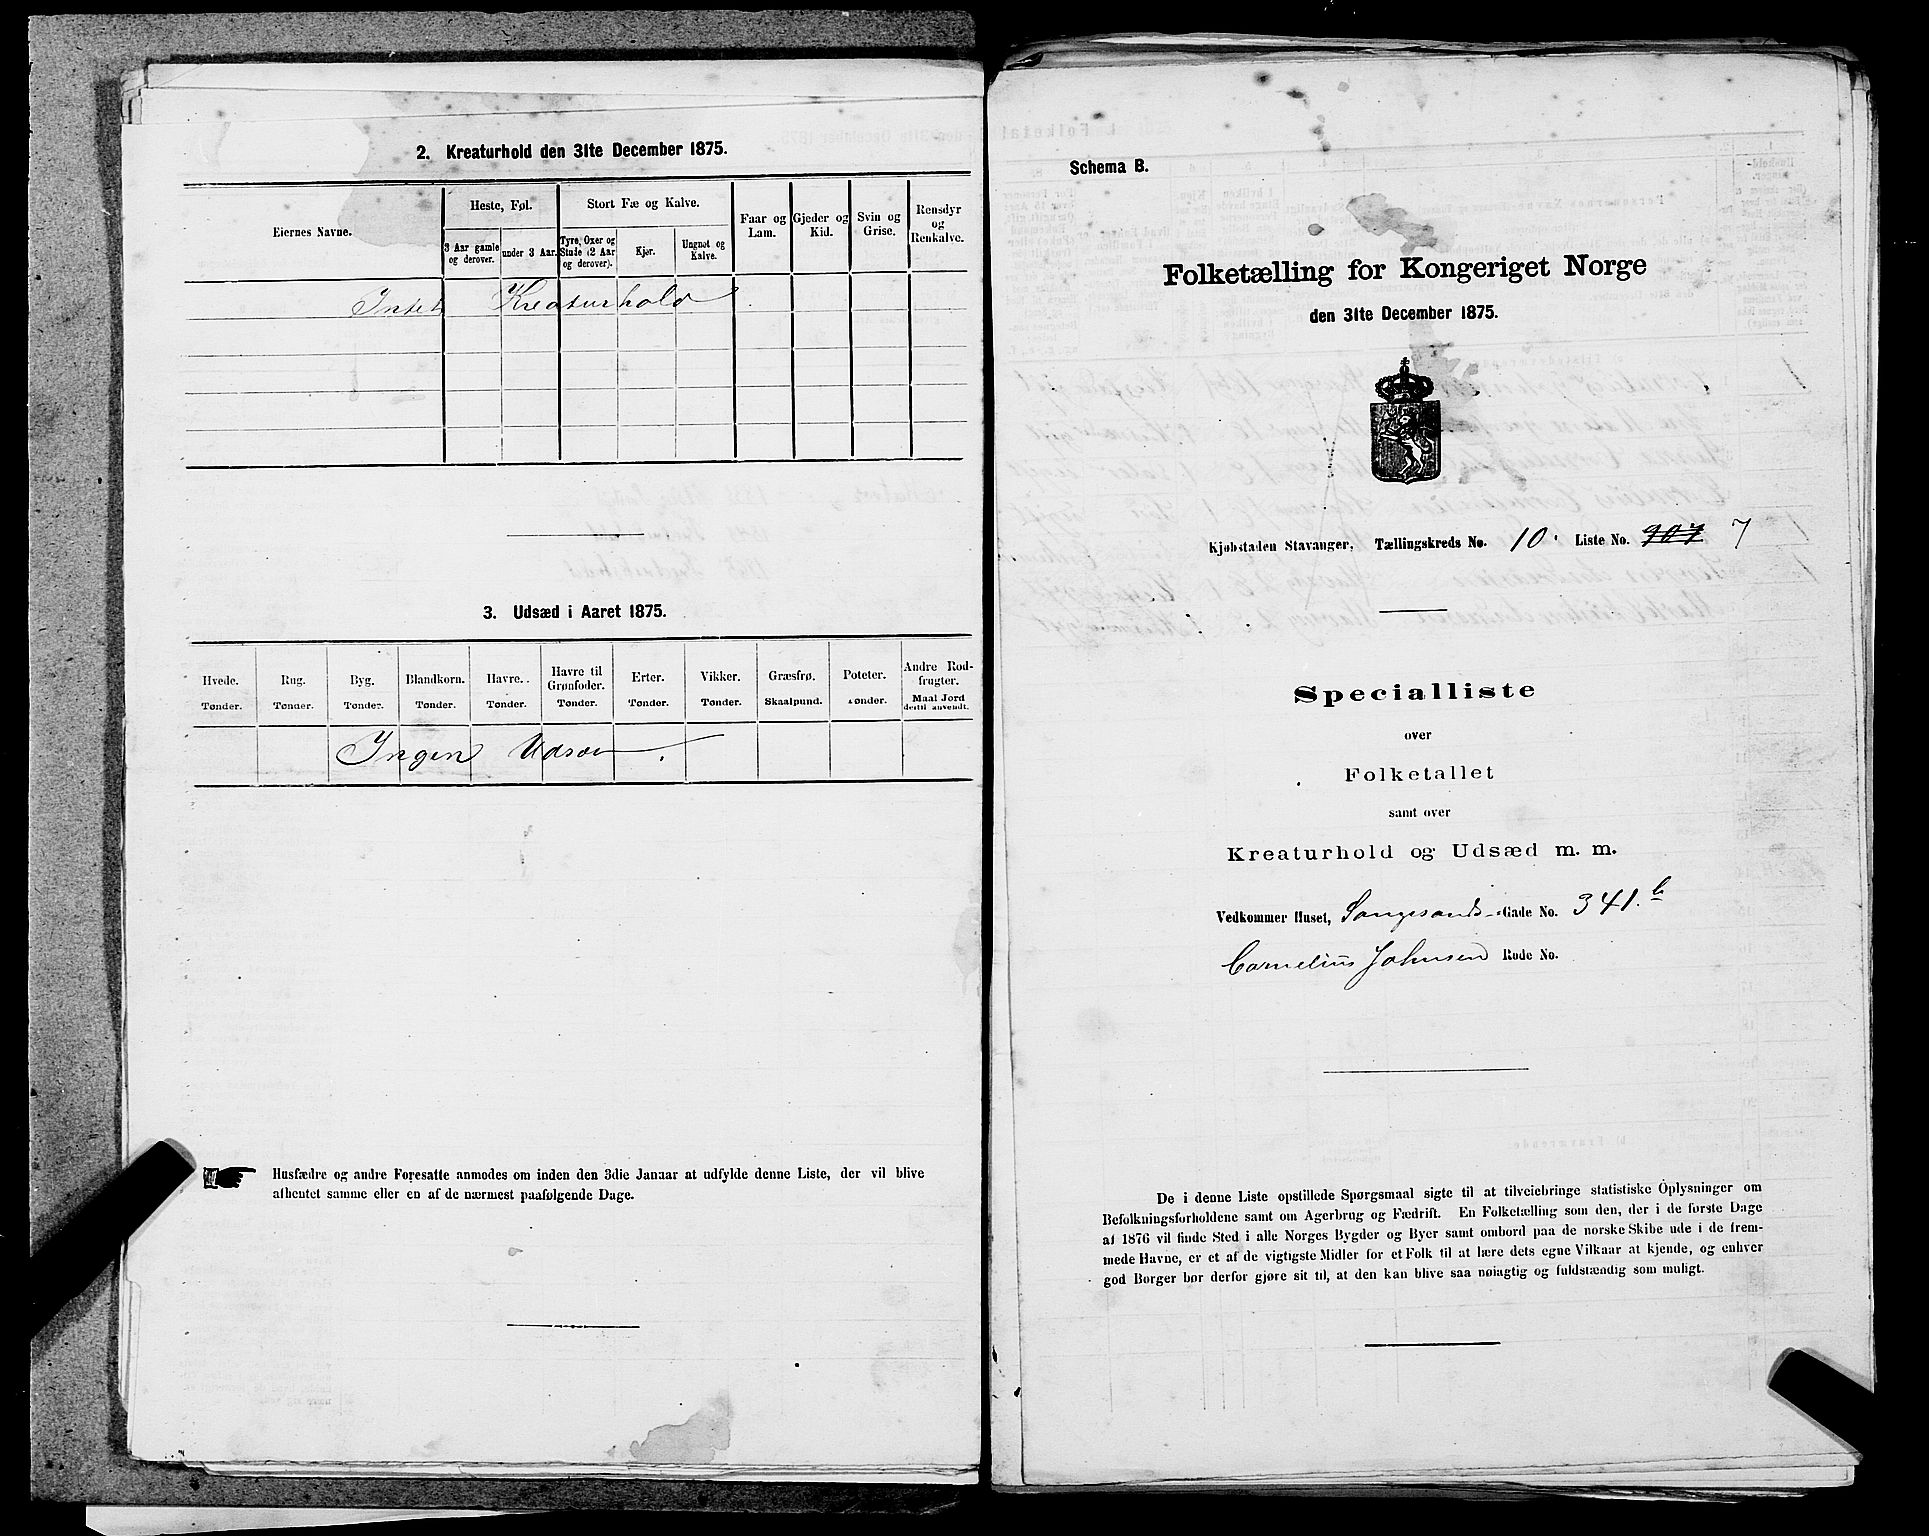 2. Kreaturhold den 31te December 1875.
Eiernes Navne.
Heste, Føl.
Stort Fæ og Kalve.
Faar og Lam.
Gjeder og Kid.
Svin og Grise.
Rensdyr og Renkalve.
3 Aar gamle og derover.
under 3 Aar.
Tyre, Oxer og Stude (2 Aar og derover).
Kjør.
Ungnøt og Kalve.
Intet Kreaturhold
3. Udsæd i Aaret 1875.
Hvede. Tønder.
Rug. Tønder.
Byg. Tønder.
Blandkorn. Tønder.
Havre. Tønder.
Havre til Grønfoder. Tønder.
Erter. Tønder.
Vikker. Tønder.
Græsfrø. Skaalpund.
Poteter. Tønder.
Andre Rodfrugter. Maal Jord dertil anvendt.
Ingen Udsæd.
Husfædre og andre Foresatte anmodes om inden den 3die Januar at udfylde denne Liste, der vil blive
afhentet samme eller en af de nærmest paafølgende Dage.
Schema B.
Folketælling for Kongeriget Norge
den 31te December 1875.
Kjøbstaden Stavanger, Tællingskreds No. 10. Liste No. 907 7
Specialliste
over
Folketallet
samt over
Kreaturhold og Udsæd m. m.
Vedkommer Huset, Sangesands-Gade No. 341.b
Cornelius Johnsen Rode No.
De i denne Liste opstillede Spørgsmaal sigte til at tilveiebringe statistiske Oplysninger om
Befolkningsforholdene samt om Agerbrug og Fædrift. En Folketælling som den, der i de første Dage
af 1876 vil finde Sted i alle Norges Bygder og Byer samt ombord paa de norske Skibe ude i de frem-
mede Havne, er et af de vigtigste Midler for et Folk til at lære dets egne Vilkaar at kjende, og enhver
god Borger bør derfor gjøre sit til, at den kan blive saa nøiagtig og fuldstændig som muligt.